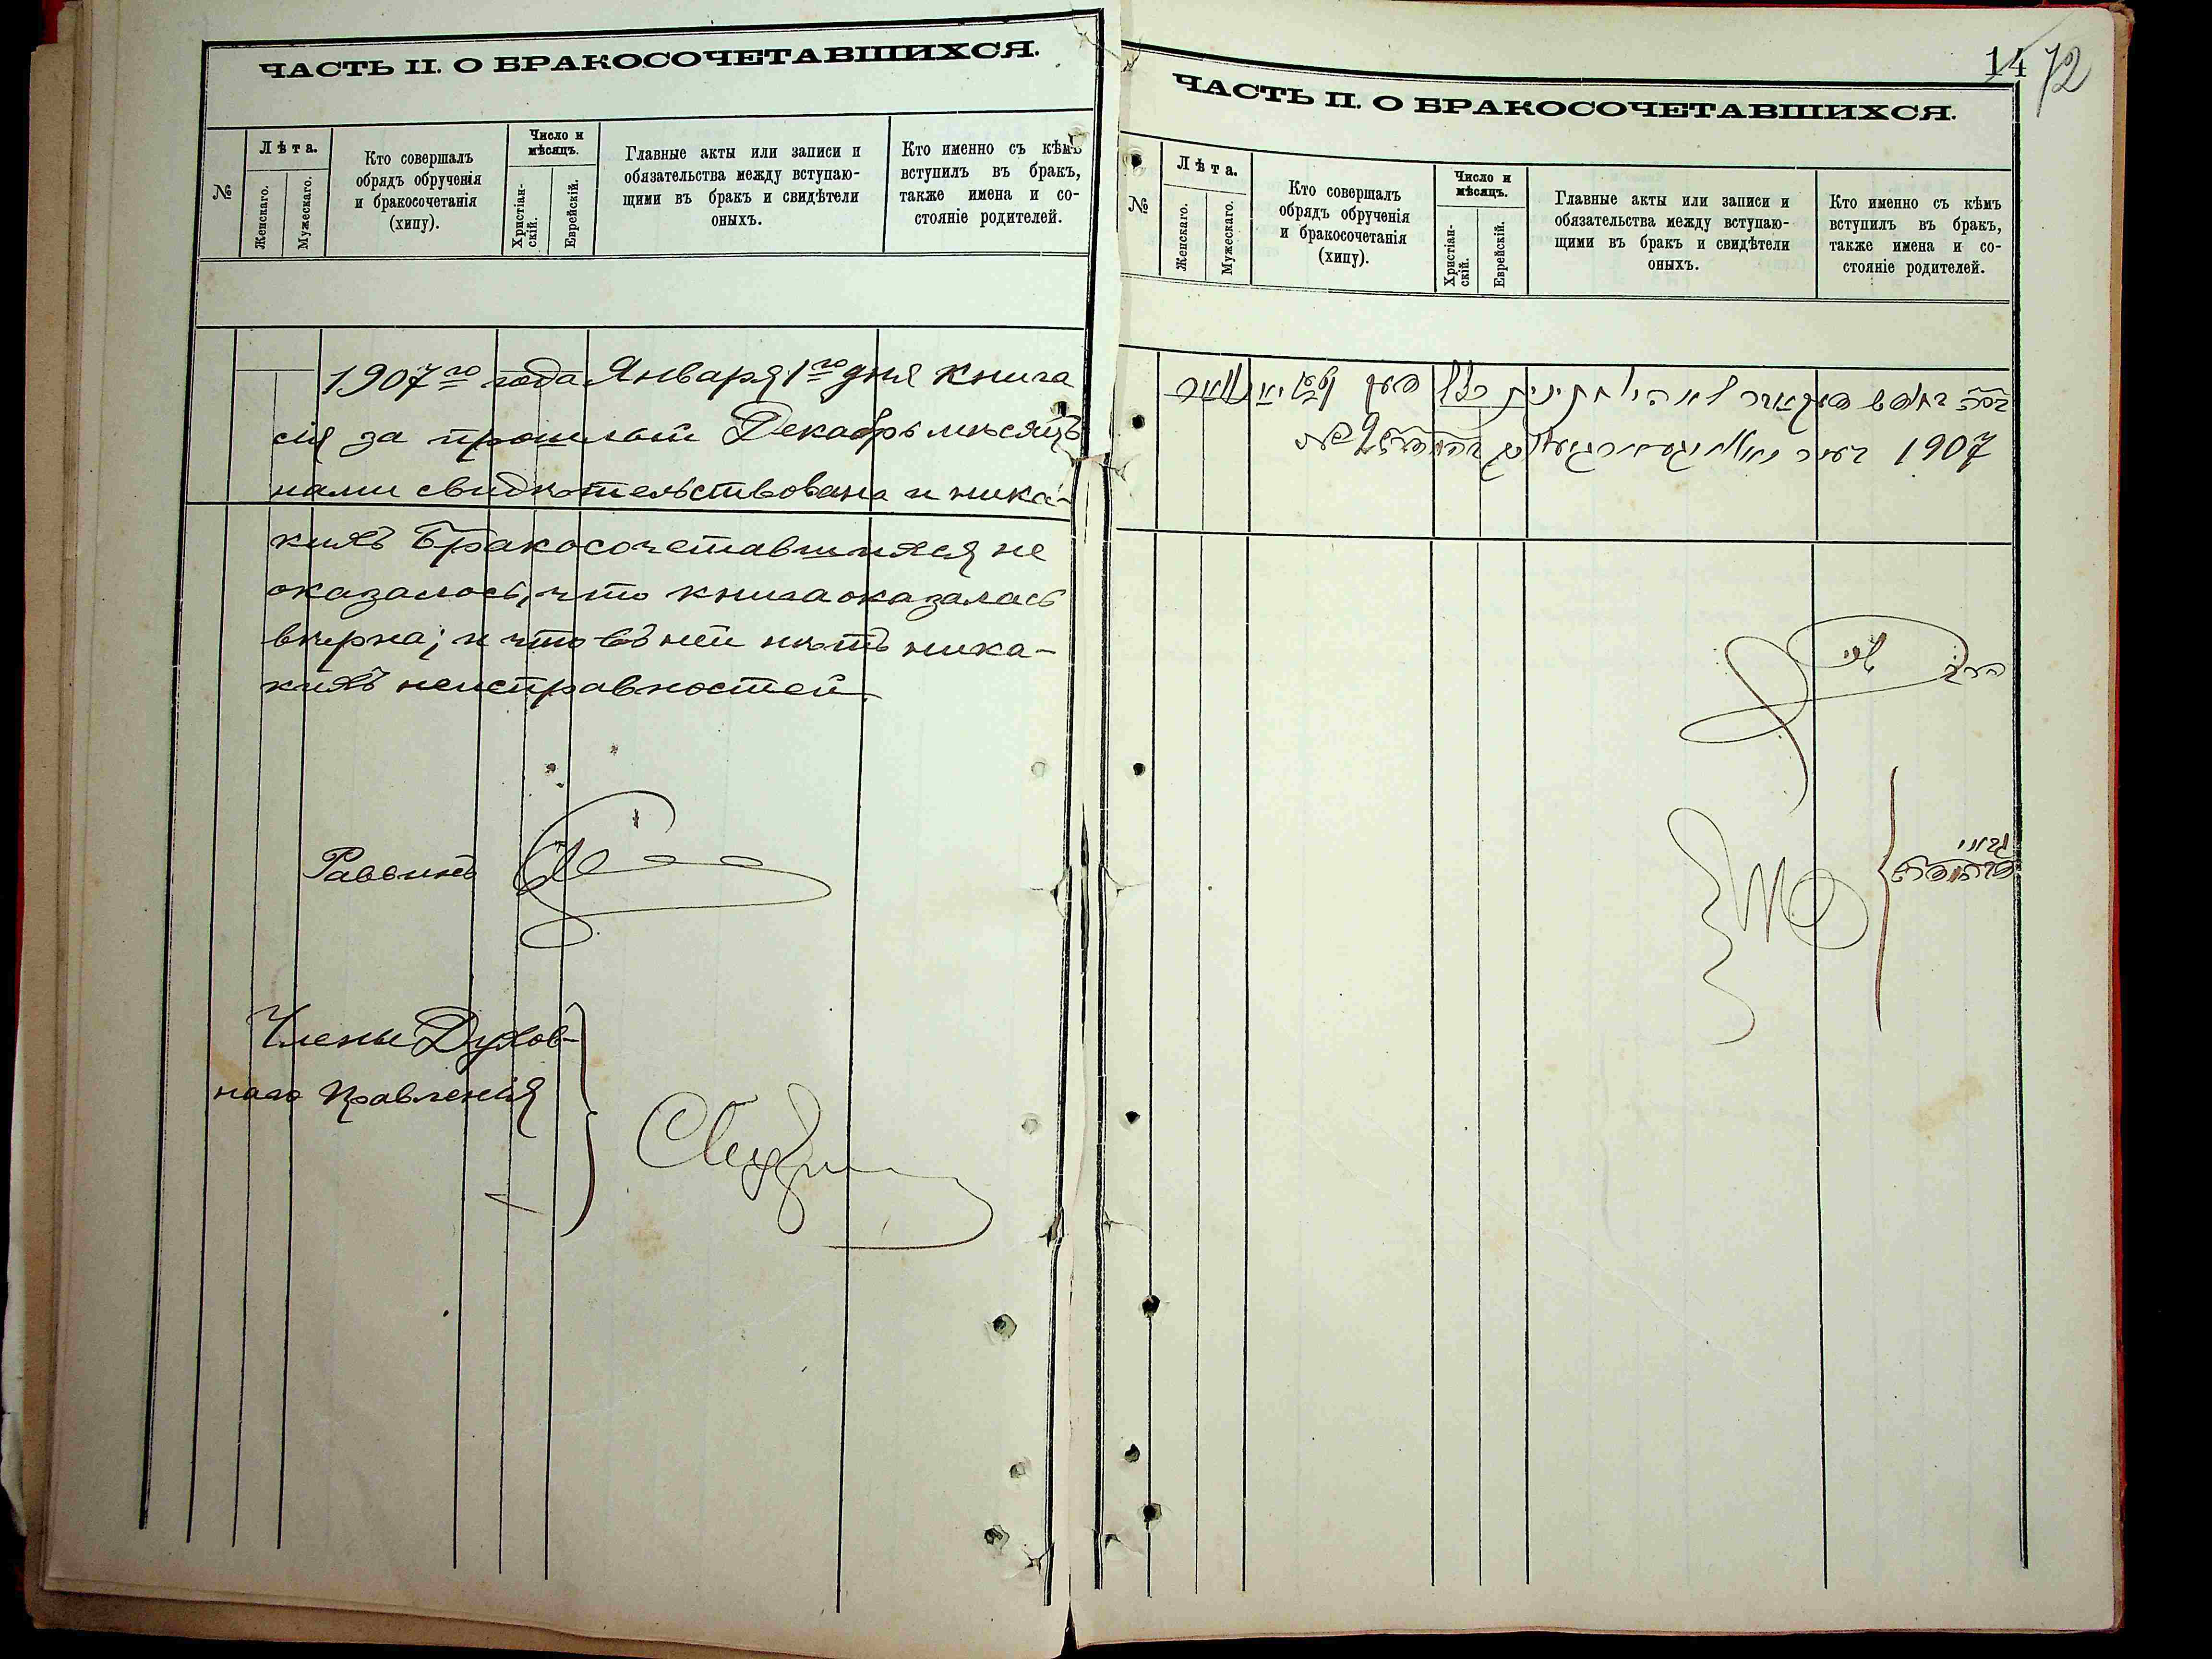 ЧАСТЬ II. О БРАКОСОЧЕТАВШИХСЯ.
№
Лѣта.
Женскаго.
Мужескаго.
Кто совершалъ
обрядъ обрученія
и бракосочетанія
(хипу).
Число и
мѣсяцъ.
Христіан-
скій.
Еврейскій.
Главные акты или записи и
обязательства между вступаю-
щими въ бракъ и свидѣтели
оныхъ.
Кто именно съ кѣмъ
вступилъ въ бракъ,
также имена и со-
стояніе родителей.
1907го года Января 1го дня книга
сія за прошлый Декабрь мѣсяцъ
нами свидѣтельствована и ника-
кихъ Бракосочетавшихся не
оказалось, что книга оказалась
вѣрна; и что въ ней нѣтъ ника-
кихъ неисправностей.
Раввинъ
Члены Духов-
наго Правленія
14 72
ЧАСТЬ II. О БРАКОСОЧЕТАВШИХСЯ.
№
Лѣта.
Женскаго.
Мужескаго.
Кто совершалъ
обрядъ обрученія
и бракосочетанія
(хипу).
Число и
мѣсяцъ.
Христіан-
скій.
Еврейскій.
Главные акты или записи и
обязательства между вступаю-
щими въ бракъ и свидѣтели
оныхъ.
Кто именно съ кѣмъ
вступилъ въ бракъ,
также имена и со-
стояніе родителей.
1907
הרב